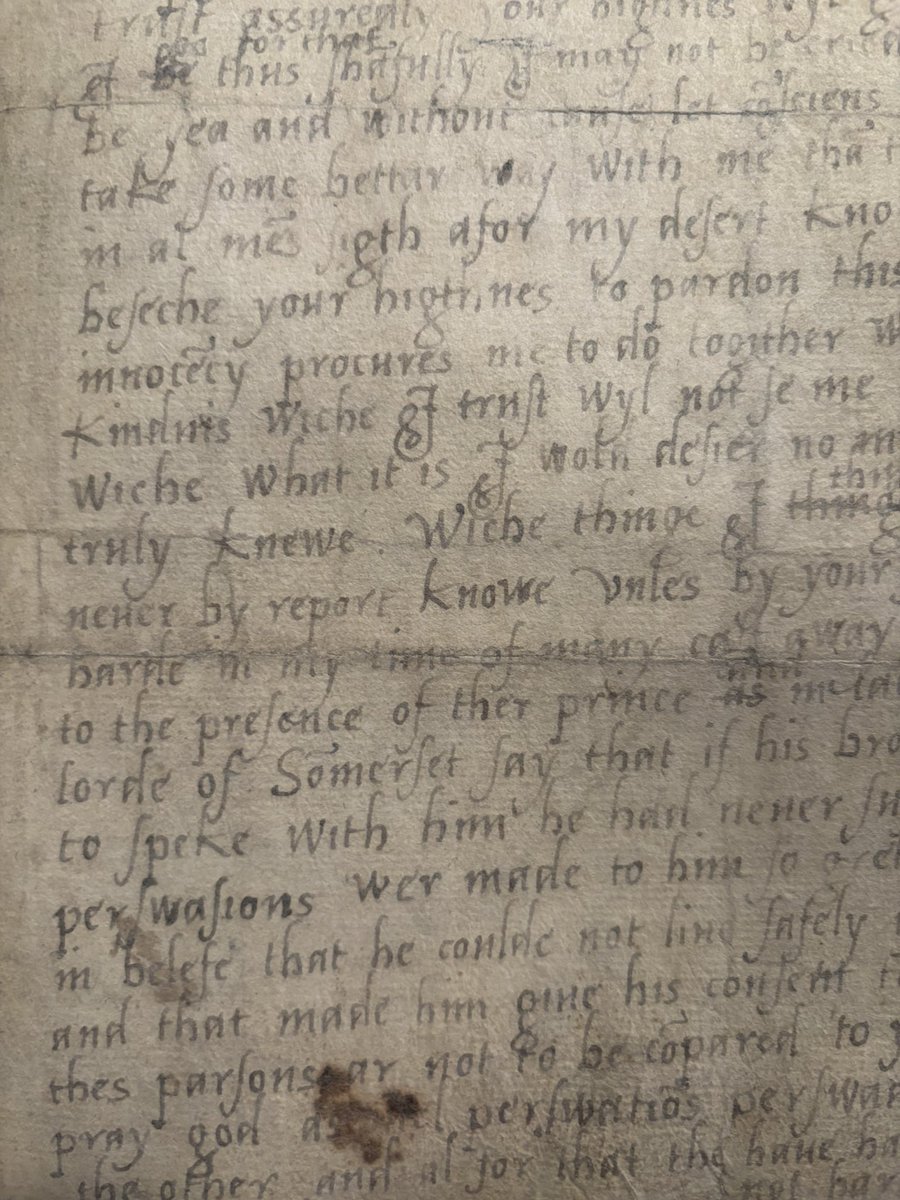 trust assuredly your highnes wyl
god for that
I be thus shafully I may not be
be yea and without cause let cōsciens
take some bettar way with me thā
in al mēs sigth afor my desert kno
beseche your higthnes to pardon this
innocēcy procures me to do togither
Kindnis wiche I trust wyl not se me
wiche what it is I wold desier no
thin
truly knewe. Wiche thinge I thinge
never by report knowe vnles by your
harde in my time of many cast away
and
to the presence of ther prince as in
lorde of Somerset say that if his bro
to speke with him he had neuer su
perswasions wer made to him so gret
in belefe that he coulde not liue safely
and that made him giue his consent
thes parsons ar not to be cōpared to
pray god perswatiōs perswa
the other and al for that the haue ha
not har